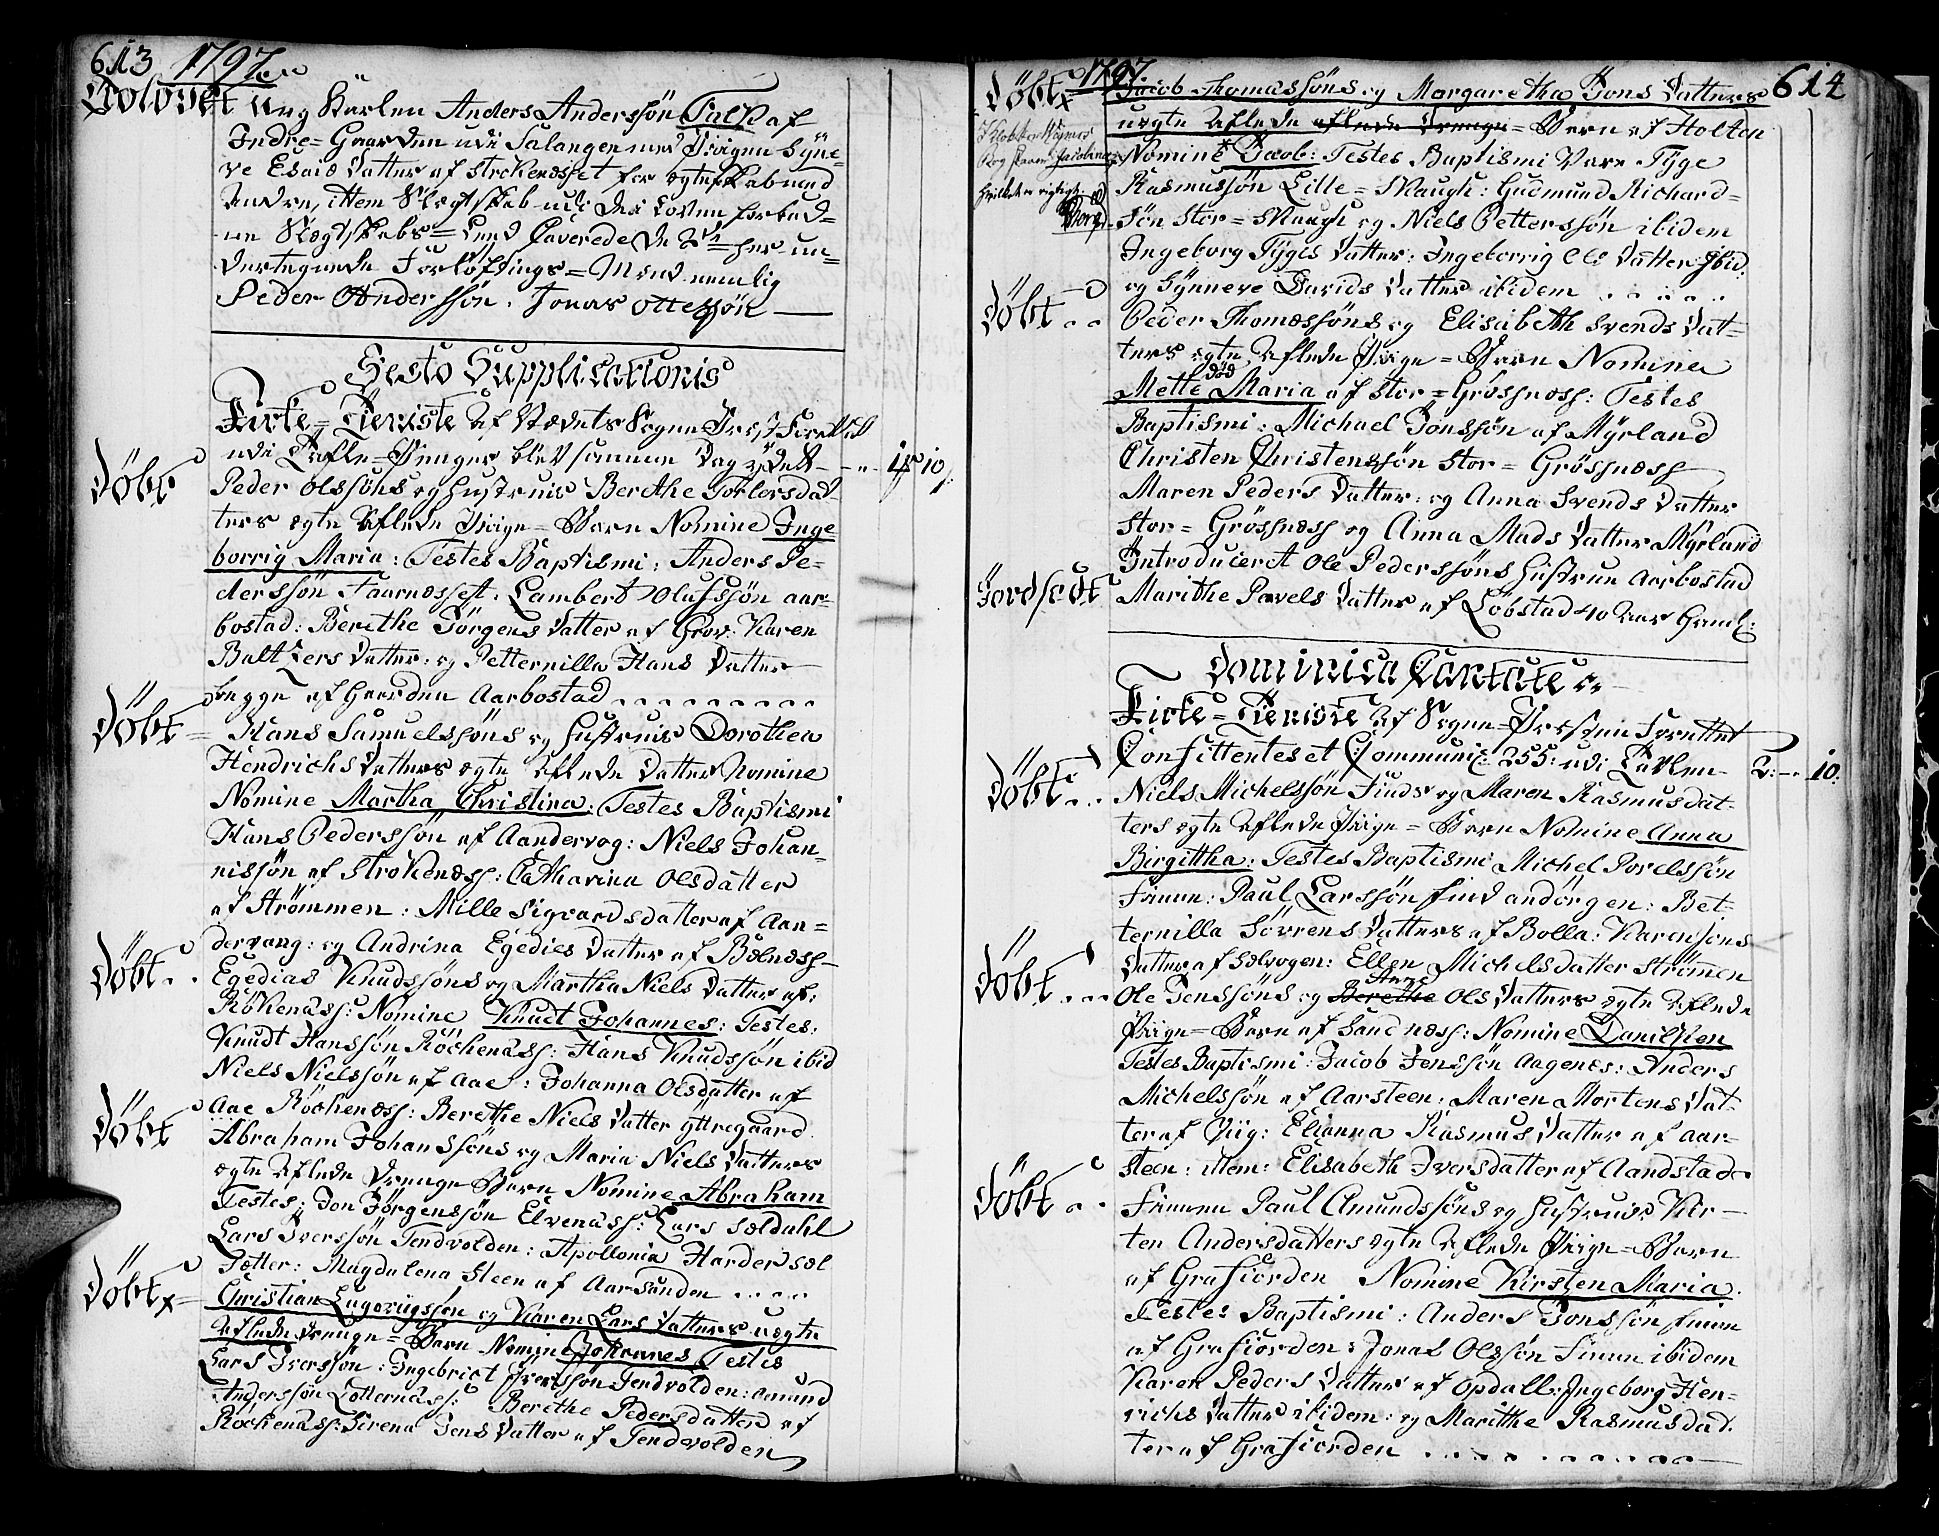 613 1797
Trolovet Ung Karlen Anders Anderssøn Talp af
Indre-Gaarden udi Salangen med Pigen Syne-
ve Esaiæ Datter af Strokenæsset for egteskab med
Andre, ittem Slegtskab udi dei Loven forbud-
ne Slegtskabs-Leed Caverede de 2de her un-
dertegnede Forløfnings-Mænd nemlig
Peder Anderssøn. Jonas Ottessøn
Festo Supplicationis
Kirke-Tieniste af Stædets Sogne Præst Forrettet
udi Tafle-Penger blev samme Dag ydet - - 1 10
Døbt Peder Olssøns og Hustruis Berethe Tollorsdat-
ters egte Aflede Piige-Barn Nomine Inge
borrig Maria: Testes Baptismi: Anders Pe-
derssøn Faarnesset. Lambert Olufssøn Aar-
bostad: Berethe Jørgens Datter af Grov: Karen
Baltzers Datter: og Petternilla Hans Datter
begge af Gaarden Aarbostad
Døbt Hans Samuelssøns og Hustruis Dorothea
Hendrichs Datters egte Aflede Datter Nomine
Nomine Martha Christina: Testes Baptismi
Hans Pederssøn af Aandervog: Niels Johan-
nissøn af Stroknæss: Catharina Olsdatter
af Strømmen: Mille Sigvardsdatter af Aan-
dervaag: og Andrina Egedies Datter af Bælnæss
Døbt Egedias Knudssøns og Martha Niels Datter af
Røkenæss: Nomine Knudt Johannes: Testes:
Knudt Hanssøn Røchenæss: Hans Knudssøn ibid
Niels Nielssøn af Aae: Johanna Olsdatter af
Aae Røchenæss: Berethe Niels Datter Yttregaard
Døbt Abraham Johanssøns og Maria Niels Datters
egte Aflede Drenge Barn Nomine Abraham
Testes: Jon Jørgenssøn Elvenæss: Lars Sældahl
Lars Iverssøn Tendvolden: Apollonia Harder Sæl
Fætter: Magdalena Steen af Aarsanden
Døbt x Christian Lugovigssøn og Karen Lars Datters uegte
Aflede Drenge-Barn Nomine Johannes Testes
Lars Iverssøn: Ingebrict Iverssøn Tendvolden: Amund
Anderssøn Lotternæss: Berethe Pedersdatter af
Røchenæss: Sirena Jens Datter af Tendvolden
1797 614
Døbt x Jacob Thomassøns og Margaretha Jons Datters
uegte Aflede aflede Drenge-Barn af Holten
Nomine Jacob: Testes Baptismi Vare Tyge
Rasmussøn Lille-Skaugh: Gudmund Richard-
søn Stor-Skaugh og Niels Petterssøn ibidem
Ingeborg Tyges Datter: Ingeborrig Ols Datter Ibid.
og Synneve Davids Datter ibidem
Døbt Peder Thomassøns og Elisabeth Svends Dat-
ters egte Aflede Piige-Barn Nomine
død
Mette Maria af Stor-Grøssnæss: Testes
Baptismi: Michael Jonssøn af Myrland
Christen Christenssøn Stor-Grøssnæss
Maren Peders Datter: og Anna Svends Datter
Stor-Grøssnæss og Anna Mads Datter Myrland
Introduceret Ole Pederssøns Hustrue Aarbostad
Jordfæstet Marithe Pavels Datter af Løbstad 40 Aar Gaml:
Dominica Cantate
Kirke-Tieniste af Sogne-Præsten Forrettet
Confittentes et Communic: 255: udi Taflen 2:-- 10.
Døbt Niels Michelssøn Finds og Maren Rasmusdat-
ters egte Aflede Piige-Barn Nomine Anna
Birgittha: Testes Baptismi Michel Povelssøn
Finnn: Paul Larssøn Find Andørgen: Bet-
ternilla Sørrens Datters af Bolla: Karen Jons
Datter af Sælvogen: Ellen Michelsdatter Strømen
Anne
Døbt Ole Jenssøns og Berethe Ols Datters egte Aflede
Piige-Barn af Sandnæss: Nomine Danilken
Testes Baptismi: Jacob Jenssøn Aagenes: Anders
Michelssøn af Aarsteen: Maren Mortens Dat-
ter af Qviig: Elianna Rasmus Datter af Aar-
steen: ittem: Elisabeth Iversdatter af Aandstad
Døbt Finnnn Paul Amundssøns og Hustrues Kir-
ten Andersdatters egte Aflede Piige-Barn
af Grafiorden Nomine Kirsten Maria.
Testes Baptismi: Anders Jonssøn Finnn
af Grafiorden: Jonas Olssøn Finnn ibidem
Karen Peders Datter af Opdall: Ingeborg Hen-
richs Datter ibidem: og Marithe Rasmusdat.
ter af Grafiorden